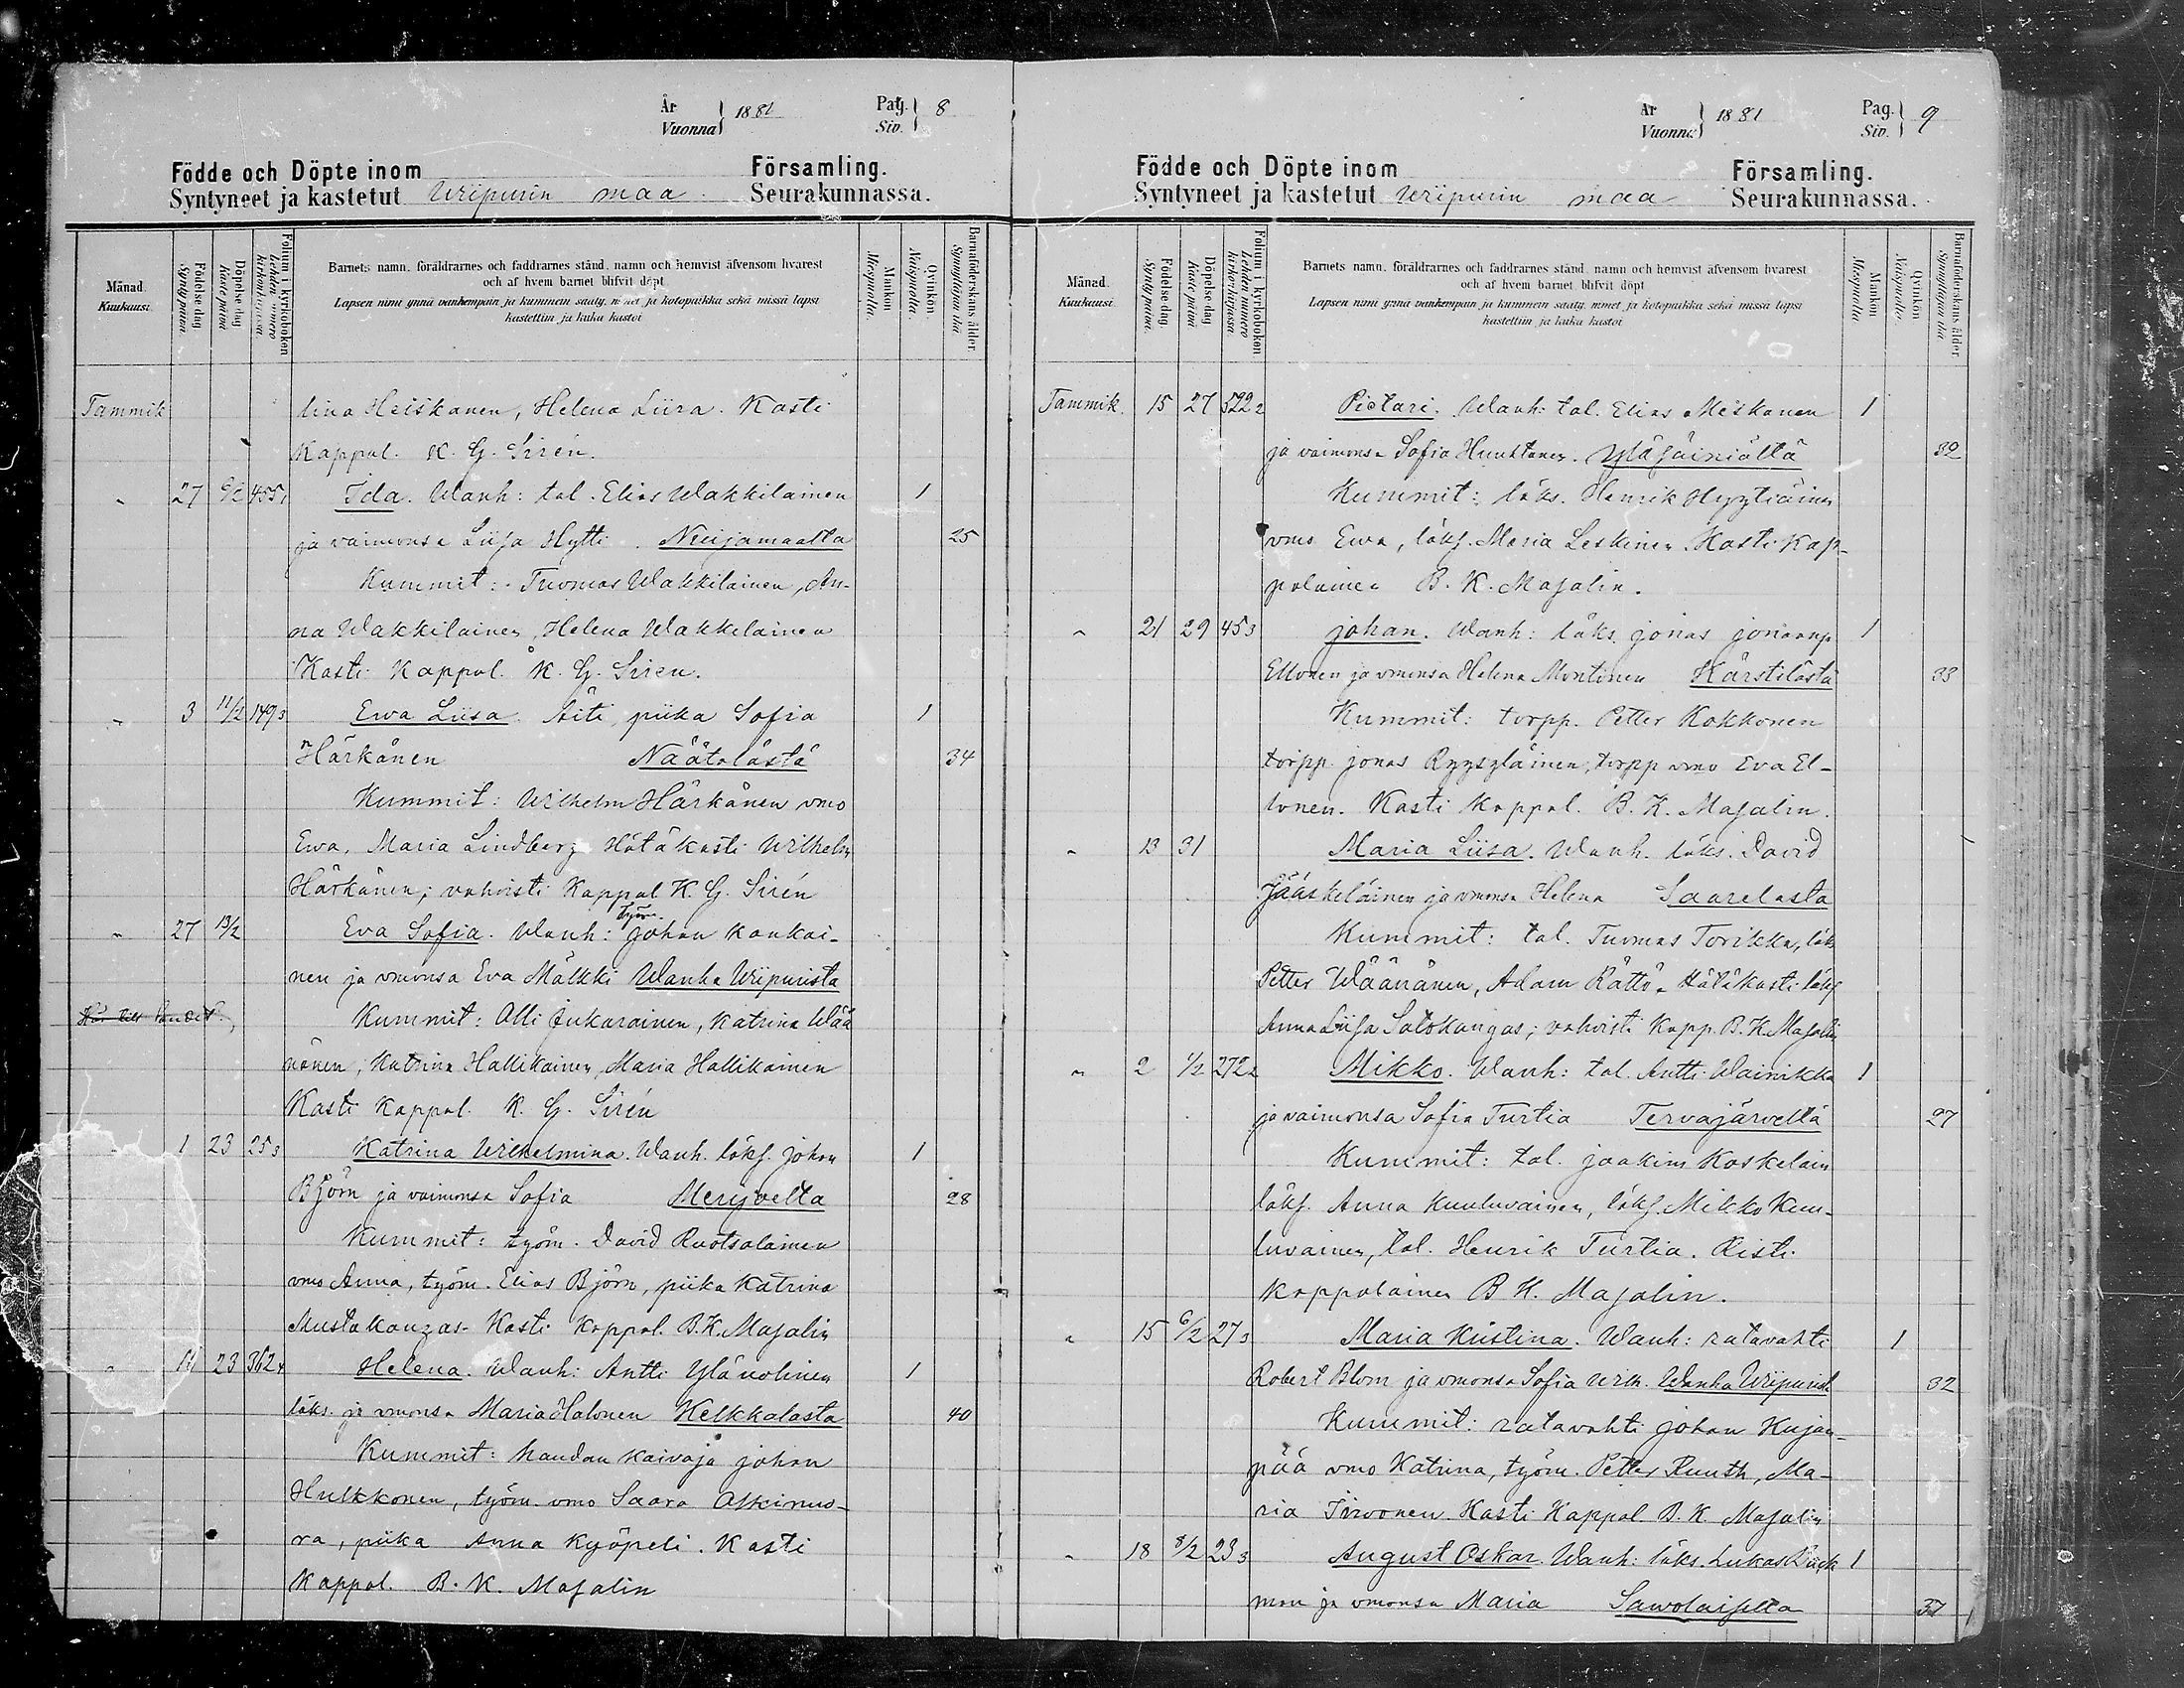 År
Vuonna } 1881 Pag.
Siv. } 8
Födde och Döpte inom Församling.
Syntyneet ja kastetut Wiipurin maa Seurakunnassa.
Månad. Kuukausi.
Födelsedag Syntypäivä
Döpelsedag Kastepäivä
Folium i kyrkoboken Lehden numero kirkonkirjassa
Barnets namn, föräldrarnes och faddrarnes stånd, namn och hemvist äfvensom hvarest
och af hvem barnet blifvit döpt
Lapsen nimi ynnä vanhempain ja kummein sääty, nimet ja kotopaikka sekä missä lapsi
kastettiin ja kuka kastoi
Mankön Miespuolia
Qvinkön Naispuolia
Barnaföderskans ålder Synnyttäjän ikä
Tammik lina Heiskanen, Helena Liira. Kasti
Kappal. K. G. Sirén.
" 27 6/2 455 Ida. Wanh: tal. Elias Wakkilainen 1
ja vaimonsa Liisa Hytti. Nuijamaalta 25
Kummit: Tuomas Wakkilainen, An-
na Wakkilainen, Helena Wakkilainen
Kasti Kappal. K. G. Siren.
" 3 11/2 149 3 Ewa Liisa. Äiti piika Sofia 1
Härkänen Näätälästä 34
Kummit: Wilhelm Härkänen vmo
Ewa, Maria Lindberg Hätäkasti Wilhelm
Härkänen; vahvisti Kappal K. G. Sirén
työm.
" 27 13/2 Eva Sofia. Wanh: Johan Kaukai-
nen ja vmonsa Eva Mälkki Wanha Wiipurista
Kummit: Olli Jukarainen, Katrina Wää
nänen, Katrina Hallikainen, Maria Hallikainen
Kasti Kappal. K. G. Sirén
1 23 25 3 Katrina Wilhelmina. Wanh. löks. Johan 1
Björn ja vaimonsa Sofia 28
Kummit: työm. David Ruotsalainen
vmo Anna, työm. Elias Björn, piika Katrina
Mustakangas. Kasti Kappal. B. K. Majalin
" 11 23 362 4 Helena. Wanh: Antti 1
löks. ja vmonsa Maria Halonen Kelkkalasta 40
Kummit: haudan kaivaja Johan
Hulkkonen, työm. vmo Saara
ra, piika Anna Kyöpeli. Kasti
Kappal. B. K. Majalin
År
Vuonna } 1881 Pag.
Siv. } 9
Födde och Döpte inom Församling.
Syntyneet ja kastetut Wiipurin maa Seurakunnassa.
Månad. Kuukausi.
Födelsedag Syntypäivä
Döpelsedag Kastepäivä
Folium i kyrkoboken Lehden numero kirkonkirjassa
Barnets namn, föräldrarnes och faddrarnes stånd, namn och hemvist äfvensom hvarest
och af hvem barnet blifvit döpt
Lapsen nimi ynnä vanhempain ja kummein sääty, nimet ja kotopaikka sekä missä lapsi
kastettiin ja kuka kastoi
Mankön Miespuolia
Qvinkön Naispuolia
Barnaföderskans ålder Synnyttäjän ikä
Tammik. 15 27 522 2 Pietari. Wanh: tal. Elias Meskanen 1
ja vaimonsa Sofia Huuhtanen. Yläsäiniältä 39
Kummit: löks. Henrik Hyytiäinen
vmo Ewa, löks. Maria Leskinen. Kasti Kap-
palainen B. K. Majalin.
" 21 29 45 3 Johan. Wanh: löks. Jonas Jonaanp. 1
Ellonen ja vmonsa Helena Montonen Kärstilästä 33
Kummit: torpp. Petter Kokkonen
torpp. Jonas Ryysyläinen, torpp vmo Eva El-
lonen. Kasti Kappal. B. K. Majalin.
" 13 31 Maria Liisa. Wanh. löks. David
Jääskeläinen ja vmonsa Helena Saarelasta
Kummit: tal. Tuomas Torikka, löks
Petter Wäänänen, Adam Rättö. Hätäkasti löks
Anna Liisa Salokangas; vahvisti Kapp. B. K. Majalin
" 2 1/2 272 2 Mikko. Wanh: tal. Antti Wainikka 1
ja vaimonsa Sofia Turtia Tervajärveltä 27
Kummit: tal. Joakim Koskelain
löks. Anna Kuuluvainen, löks. Mikko Kuu-
luvainen, tal. Henrik Turtia. Risti
Kappalainen B K. Majalin.
" 15 6/2 27 3 Maria Kristina. Wanh: ratavahti 1
Robert Blom ja vmonsa Sofia Wilh. Wanha Wiipurista 32
Kummit: ratavahti Johan Kujan-
pää vmo Katrina, työm. Petter Ruuth, Ma-
ria Hirvonen. Kasti Kappal. B. K. Majalin
" 18 8/2 23 3 August Oskar. Wanh: löks. Lukas Bäck 1
man ja vmonsa Maria 37